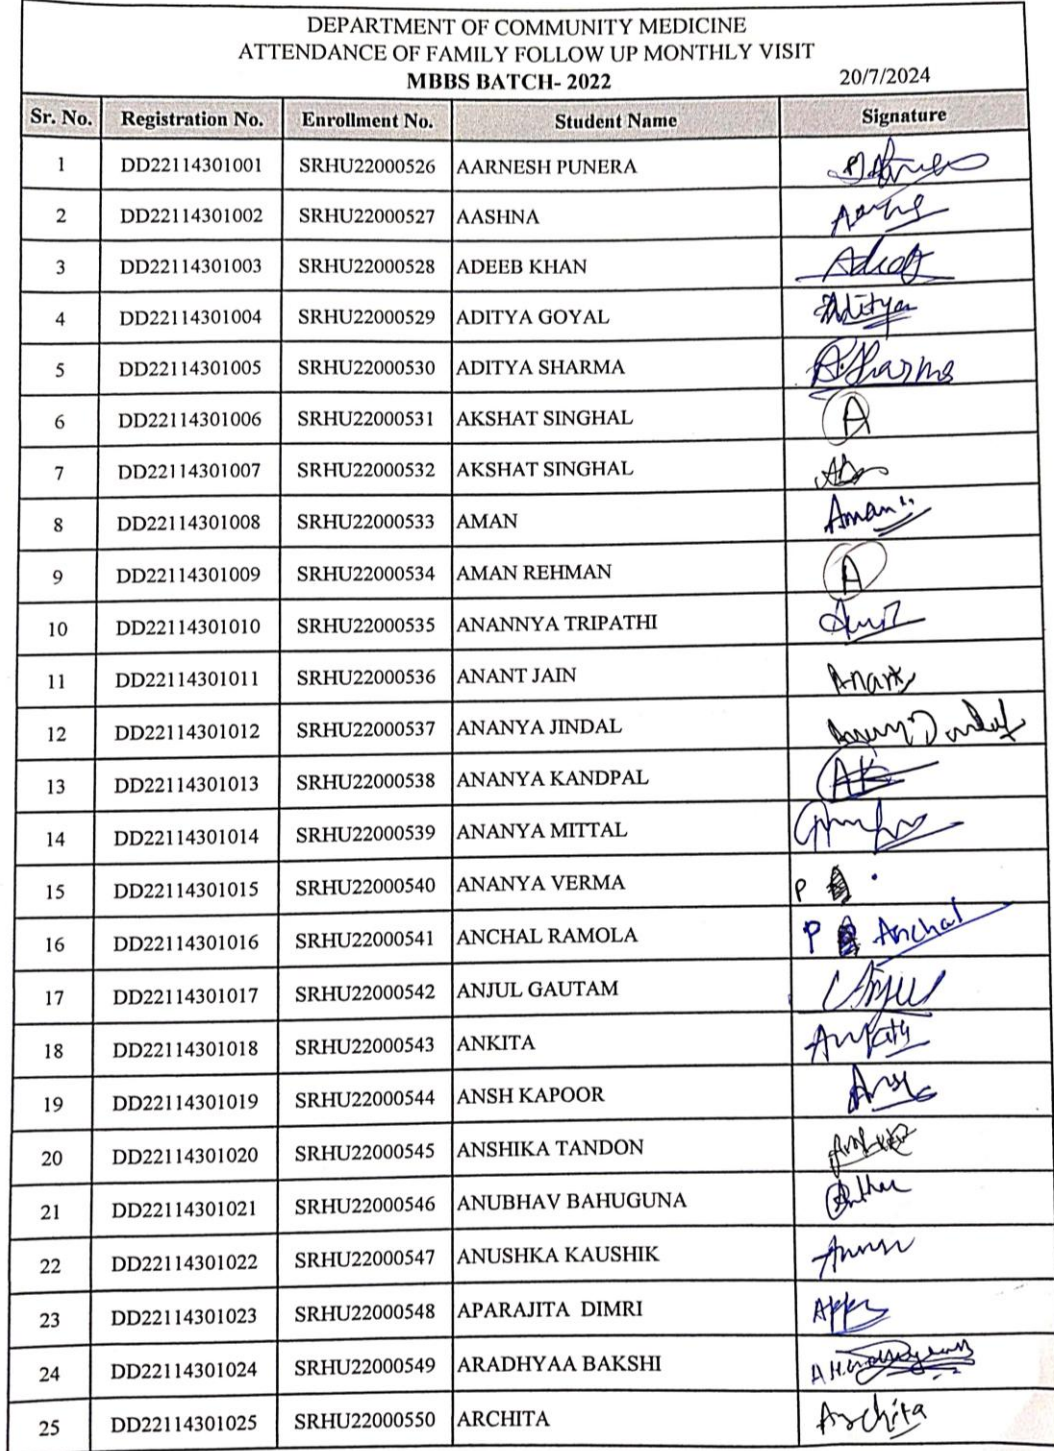 DEPARTMENT OF COMMUNITY MEDICINE
ATTENDANCE OF FAMILY FOLLOW UP MONTHLY VISIT
MBBS BATCH- 2022 20/7/2024
Sr. No. Registration No. Enrollment No. Student Name Signature
1 DD22114301001 SRHU22000526 AARNESH PUNERA
2 DD22114301002 SRHU22000527 AASHNA
3 DD22114301003 SRHU22000528 ADEEB KHAN
4 DD22114301004 SRHU22000529 ADITYA GOYAL Aditya
5 DD22114301005 SRHU22000530 ADITYA SHARMA A.Sharma
6 DD22114301006 SRHU22000531 AKSHAT SINGHAL A
7 DD22114301007 SRHU22000532 AKSHAT SINGHAL
8 DD22114301008 SRHU22000533 AMAN Aman
9 DD22114301009 SRHU22000534 AMAN REHMAN A
10 DD22114301010 SRHU22000535 ANANNYA TRIPATHI
11 DD22114301011 SRHU22000536 ANANT JAIN Anant
12 DD22114301012 SRHU22000537 ANANYA JINDAL
13 DD22114301013 SRHU22000538 ANANYA KANDPAL AK
14 DD22114301014 SRHU22000539 ANANYA MITTAL
15 DD22114301015 SRHU22000540 ANANYA VERMA P
16 DD22114301016 SRHU22000541 ANCHAL RAMOLA P Anchal
17 DD22114301017 SRHU22000542 ANJUL GAUTAM
18 DD22114301018 SRHU22000543 ANKITA Ankita
19 DD22114301019 SRHU22000544 ANSH KAPOOR
20 DD22114301020 SRHU22000545 ANSHIKA TANDON
21 DD22114301021 SRHU22000546 ANUBHAV BAHUGUNA
22 DD22114301022 SRHU22000547 ANUSHKA KAUSHIK
23 DD22114301023 SRHU22000548 APARAJITA DIMRI
24 DD22114301024 SRHU22000549 ARADHYAA BAKSHI
25 DD22114301025 SRHU22000550 ARCHITA Archita